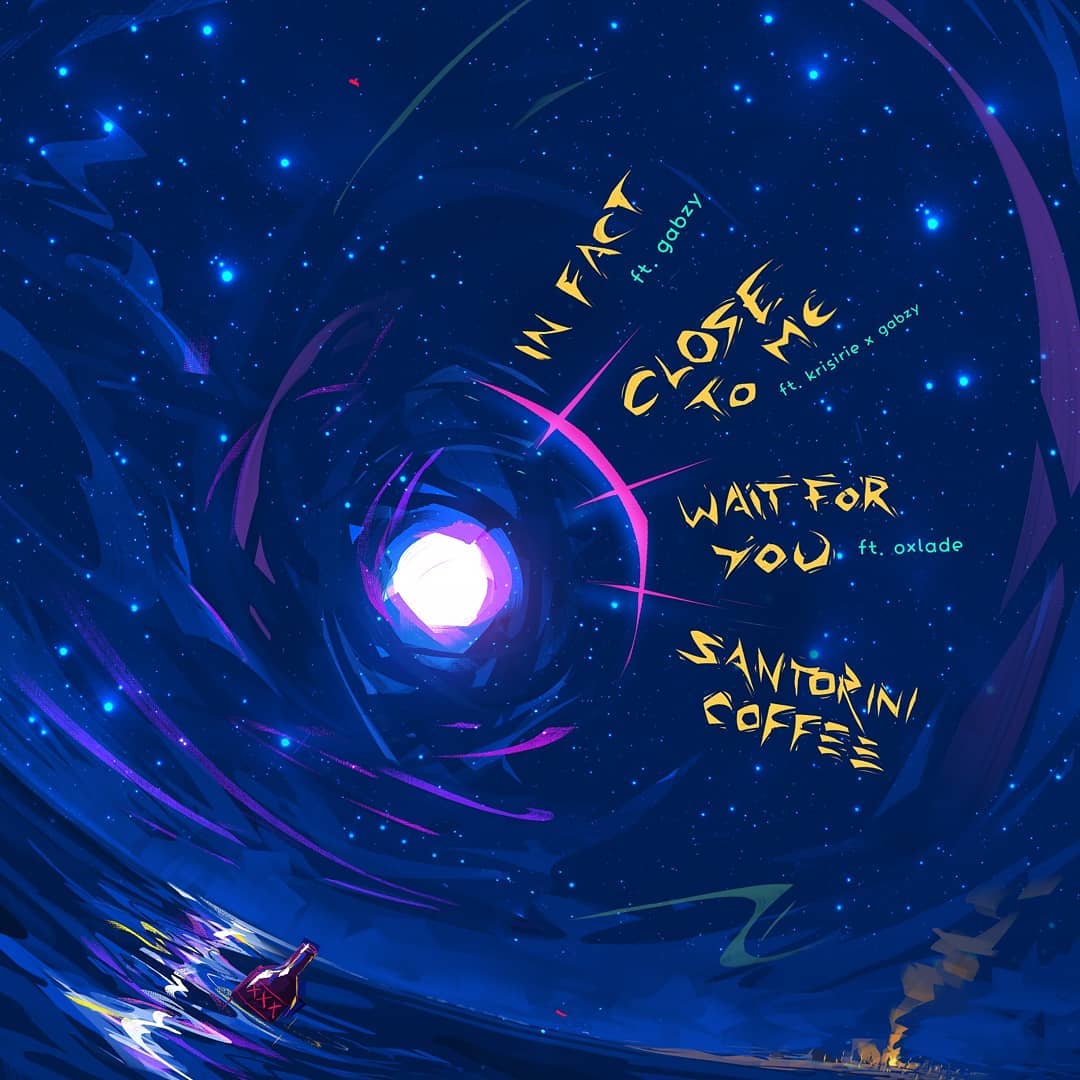 IN FACT
ft. gabzy
CLOSE
TO ME
ft. krisirie x gabzy
WAIT FOR
YOU ft. oxlade
SANTORINI
COFFEE
XXX